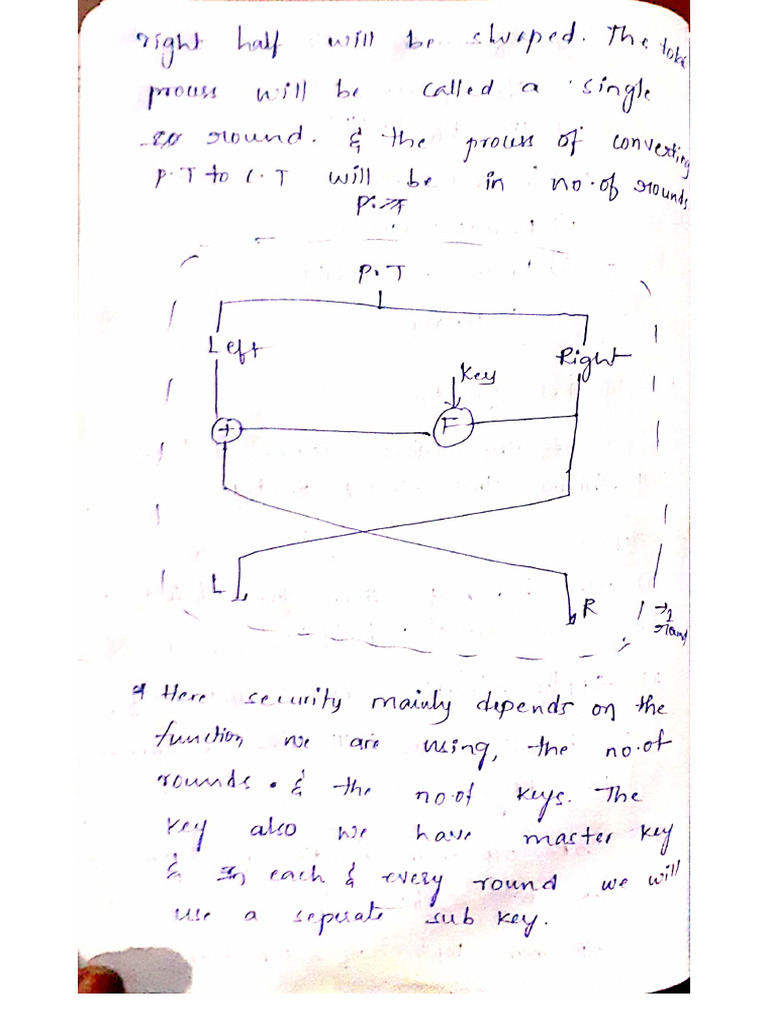 right half will be swaped. The total
prouss will be called a single
round. & the prouss of converting
P.T to C.T will be in no.of rounds
P.T
Left
Right
Key
+
F
L
R
→1
round
* Here security mainly depends on the
function we are using, the no.of
rounds. & the no.of keys. The
key also we have master key
& in each & every round we will
use a seperate sub key.